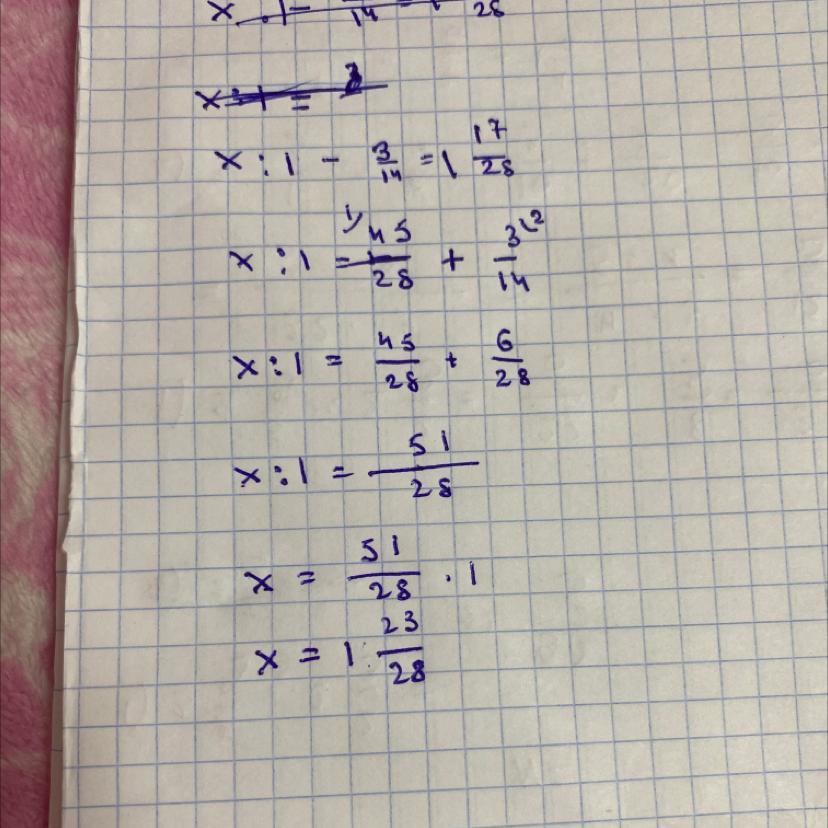 x : 1 - /14 = 1 /28
x : 1 = 3
x : 1 - 3/14 = 1 17/28
x : 1 = 45/28 + 3/14
x : 1 = 45/28 + 6/28
x : 1 = 51/28
x = 51/28 · 1
x = 1 23/28